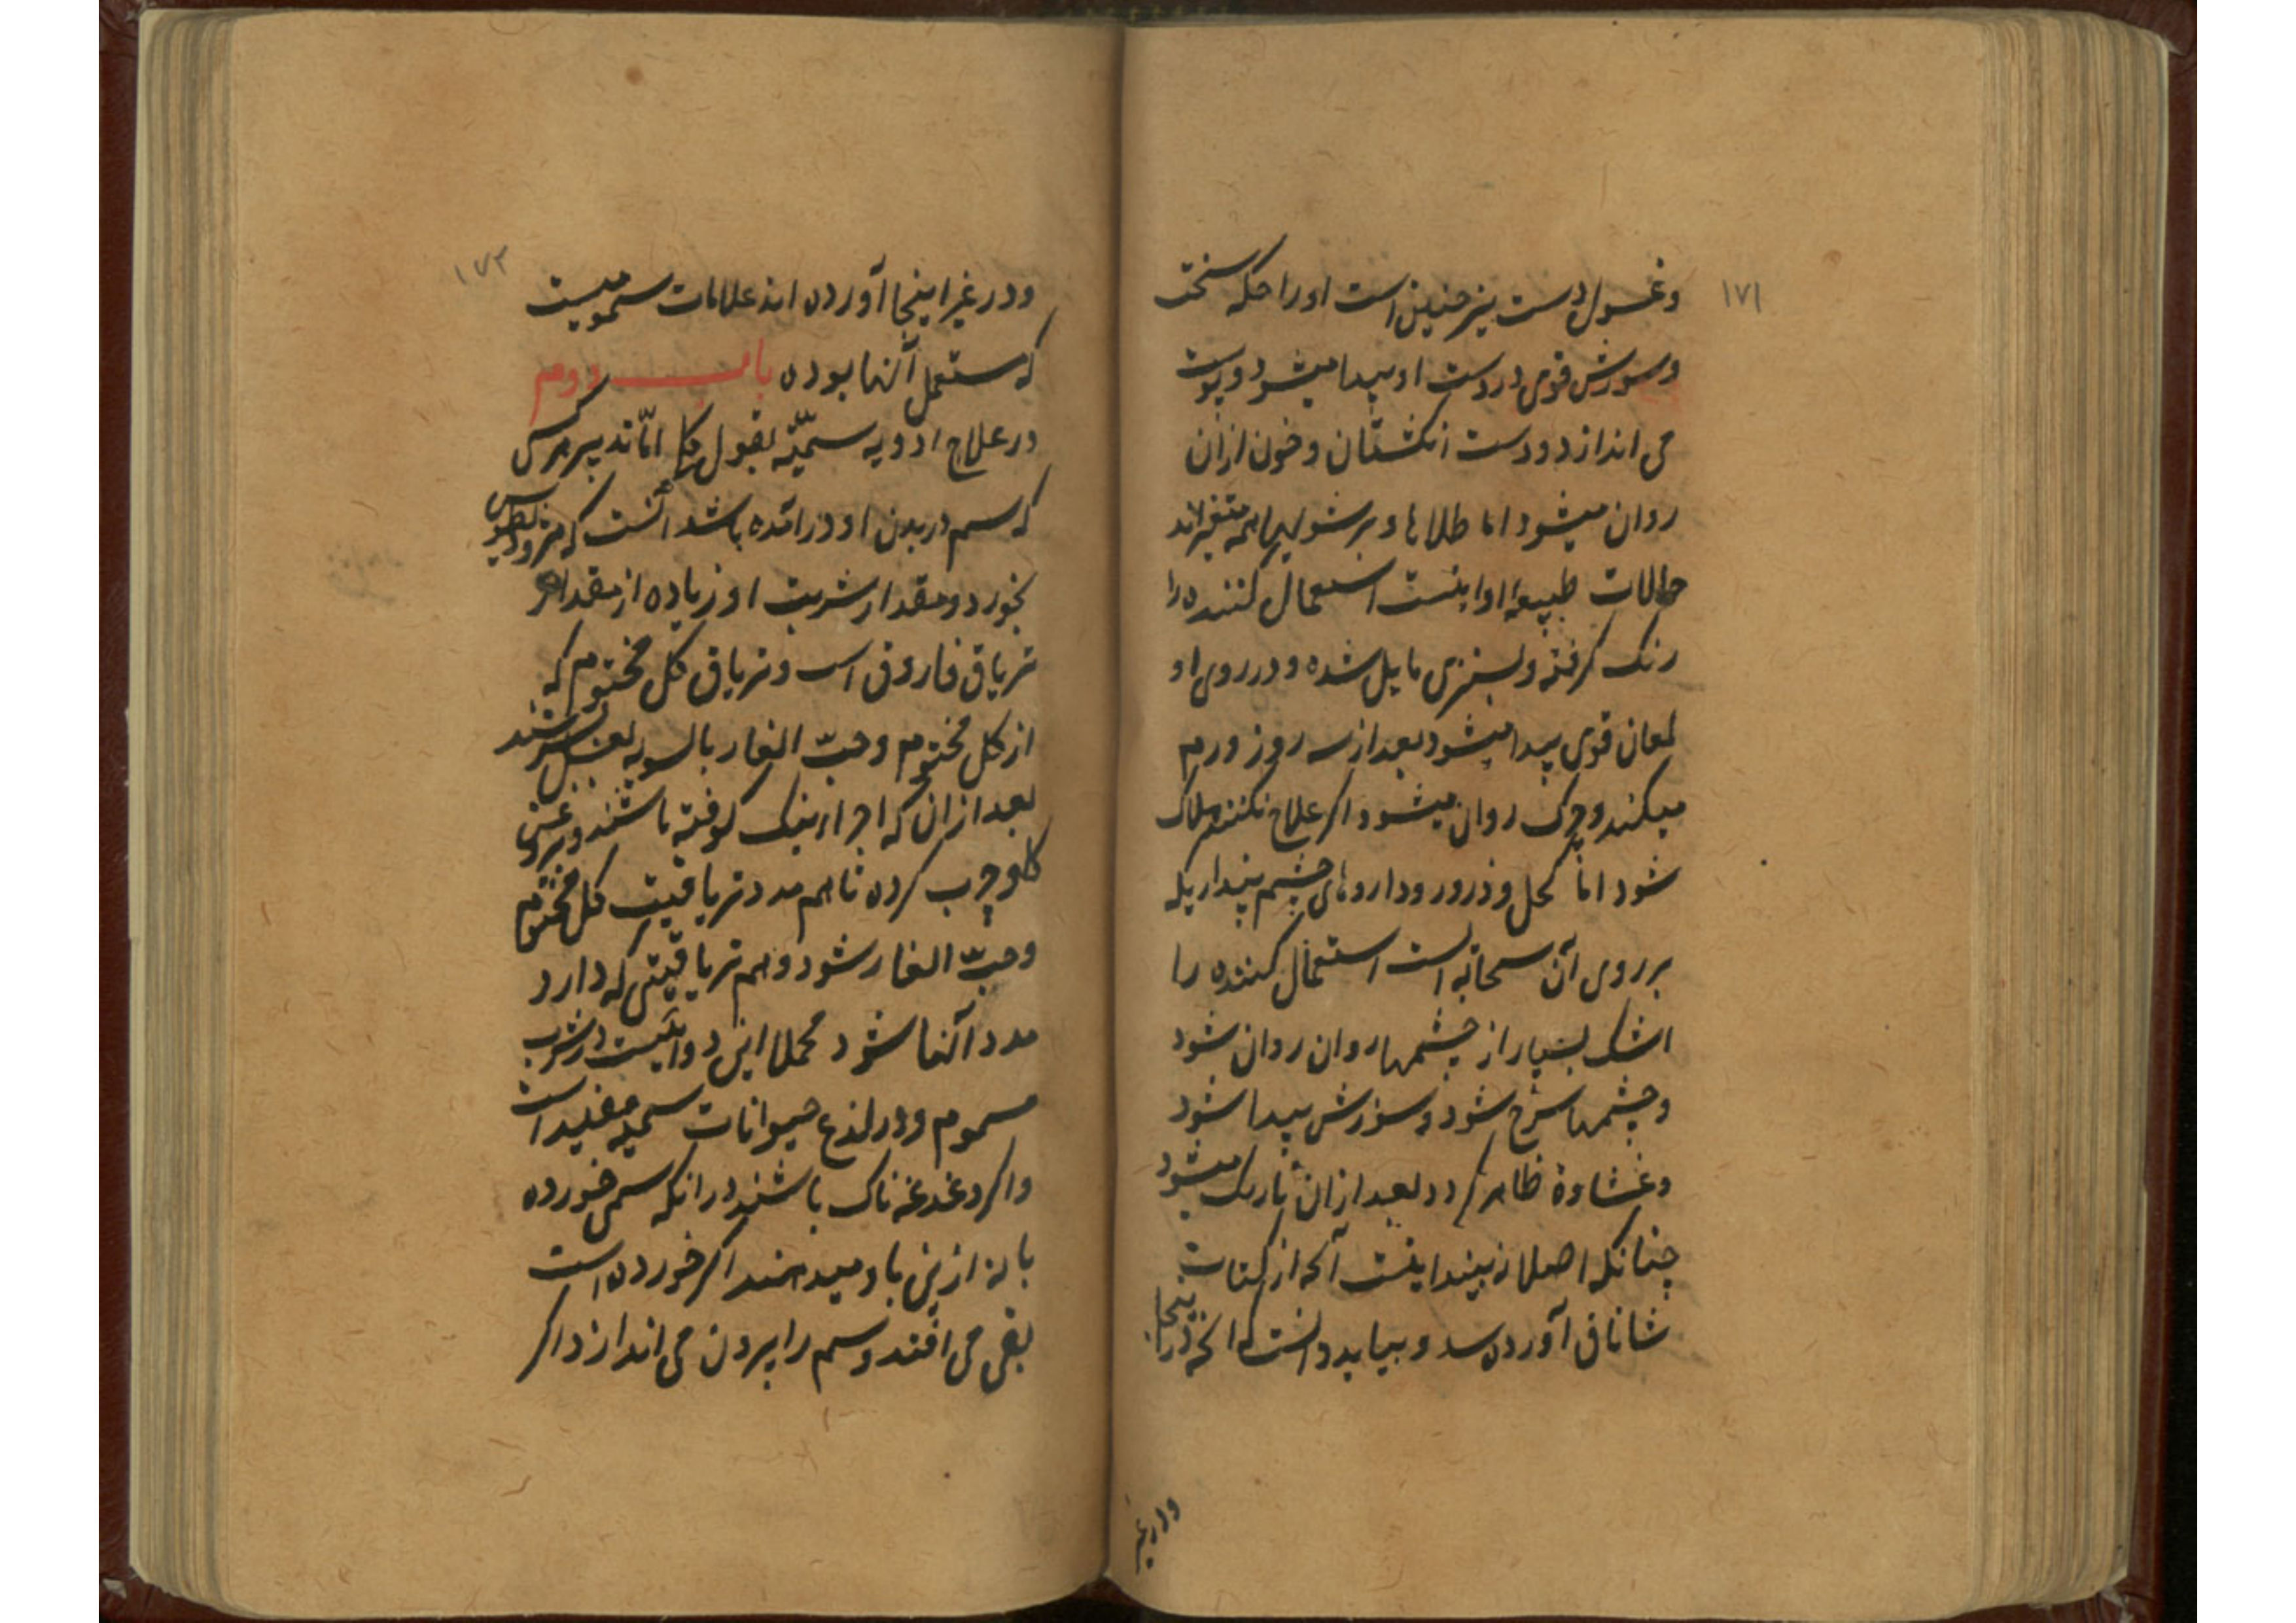 ۱۷۱
وغسول دست نیز چنین است او را حکه سخت
و سوزش قوی در دست او پیدا میشود و پوست
می اندازد و دست انکشتان و خون ازان
روان میشود اما طلاها و برشولیها همه متغیراند
حالات طبیعه او اینست استعمال کننده را
رنک کرفته و بسبزی مایل شده و در روی او
لمعان قوی پیدا میشود بعد از سه روز ورم
میکند و چرک روان میشود اکر علاج نکنند هلاک
شود اما کحل و ذرور و داروهای چشم پنداریکه
بر روی آن سحابه است استعمال کننده را
اشک بسیار از چشمها روان روان شود
و چشمها سرخ شود و سوزش پیدا شود
و غشاوة ظاهر کردد بعد ازان تاریک میشود
چنانکه اصلا نه بیند اینست آنچه از کتاب
شاناق آورده و بباید دانست که آنچه در اینجا
ودرغیر
۱۷۲
و در غیر اینجا آورده اند علامات سمومیست
که مستعمل آنها بوده باب دوم
در علاج ادویه سمیّه بقول حکما امّا تدبیر هرکس
که سم در بدن او درآمده باشد آنست که مثرودیطوس
بخورد و مقدار شربت او زیاده از مقدار
تریاق فاروق است و تریاق کل مختوم که
از کل مختوم و حبّ الغار بالسویه بعسل بسرشند
بعد ازان که اجزا نیک کوفته باشند و بروغن
کاو چرب کرده تا هم مدد تریاقیت کل مختوم
و حبّ الغار شود و هم تریاقیتی که دارد
مدد آنها شود مجملا این دوائیست در شرب
مسموم و در لذع حیوانات سمیه مفید است
و اکر دغدغه ناک باشند در انکه سمی خورده
یا نه ازین باو میدهند اکر خورده است
بقی می افتد و سم را بیرون می اندازد اکر